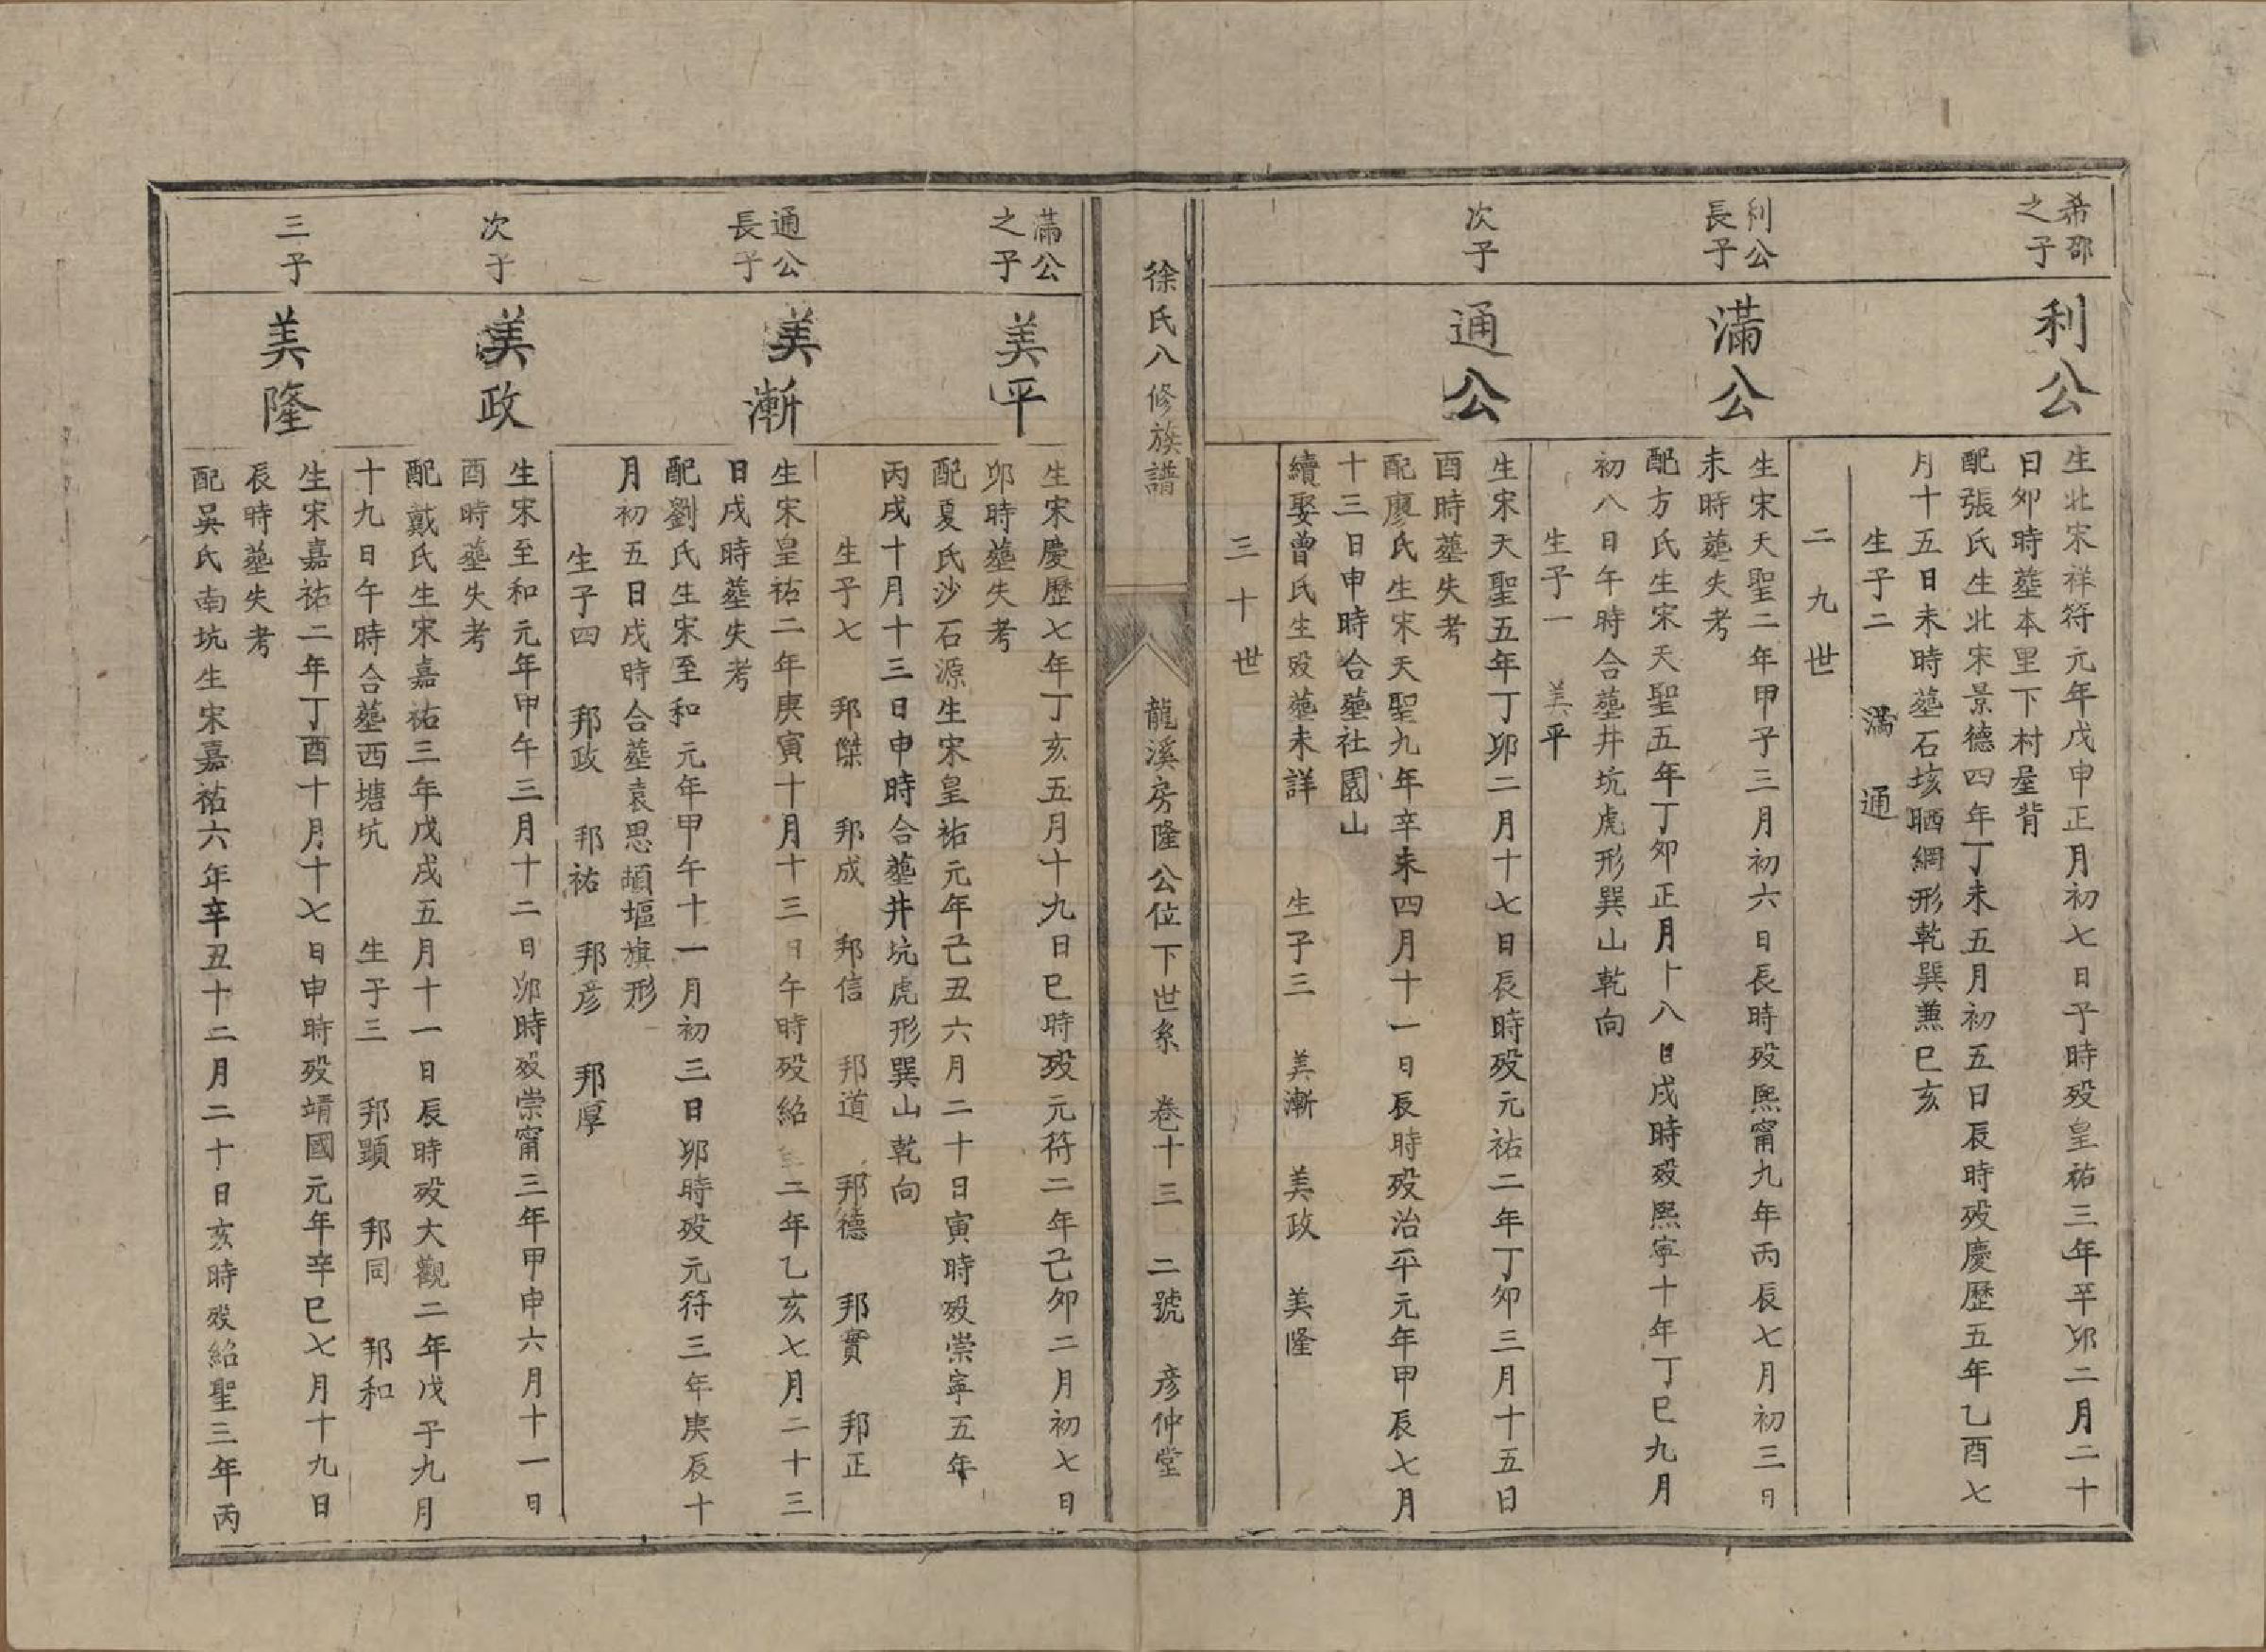 希郘
之子
利公
生北宋祥符元年戊申正月初七日子時殁皇祐三年辛卯二月二十
日卯時塟本里下村屋背
配張氏生北宋景德四年丁未五月初五日辰時殁慶歷五年乙酉七
月十五日未時塟石垓晒網形乾巽兼巳亥
生子二 滿 通
二九世
利公
長子
滿公
生宋天聖二年甲子三月初六日長時殁熙甯九年丙辰七月初三日
未時塟失考
配方氏生宋天聖五年丁卯正月十八日戌時殁熙寜十年丁巳九月
初八日午時合塟井坑虎形巽山乾向
生子一 美平
次子
通公
生宋天聖五年丁卯二月十七日辰時殁元祐二年丁卯三月十五日
酉時塟失考
配廖氏生宋天聖九年辛未四月十一日辰時殁治平元年甲辰七月
十三日申時合塟社園山
續娶曾氏生殁塟未詳 生子三 美漸 美政 美隆
三十世
徐氏八修族譜
龍溪房隆公位下世系 卷十三 二號 彥仲堂
滿公
之子
美平
生宋慶歷七年丁亥五月十九日巳時殁元符二年己卯二月初七日
卯時塟失考
配夏氏沙石源生宋皇祐元年己丑六月二十日寅時殁崇寜五年
丙戌十月十三日申時合塟井坑虎形巽山乾向
生子七 邦傑 邦成 邦信 邦道 邦德 邦實 邦正
通公
長子
美漸
生宋皇祐二年庚寅十月十三日午時殁紹聖二年乙亥七月二十三
日戌時塟失考
配劉氏生宋至和元年甲午十一月初三日卯時殁元符三年庚辰十
月初五日戌時合塟袁思墳塸旗形
生子四 邦政 邦祐 邦彥 邦厚
次子
美政
生宋至和元年甲午三月十二日卯時殁崇甯三年甲申六月十一日
酉時塟失考
配戴氏生宋嘉祐三年戊戌五月十一日辰時殁大觀二年戊子九月
十九日午時合塟西塘坑 生子三 邦顕 邦同 邦和
三子
美隆
生宋嘉祐二年丁酉十月十七日申時殁靖國元年辛巳七月十九日
辰時塟失考
配吳氏南坑生宋嘉祐六年辛丑十二月二十日亥時殁紹聖三年丙